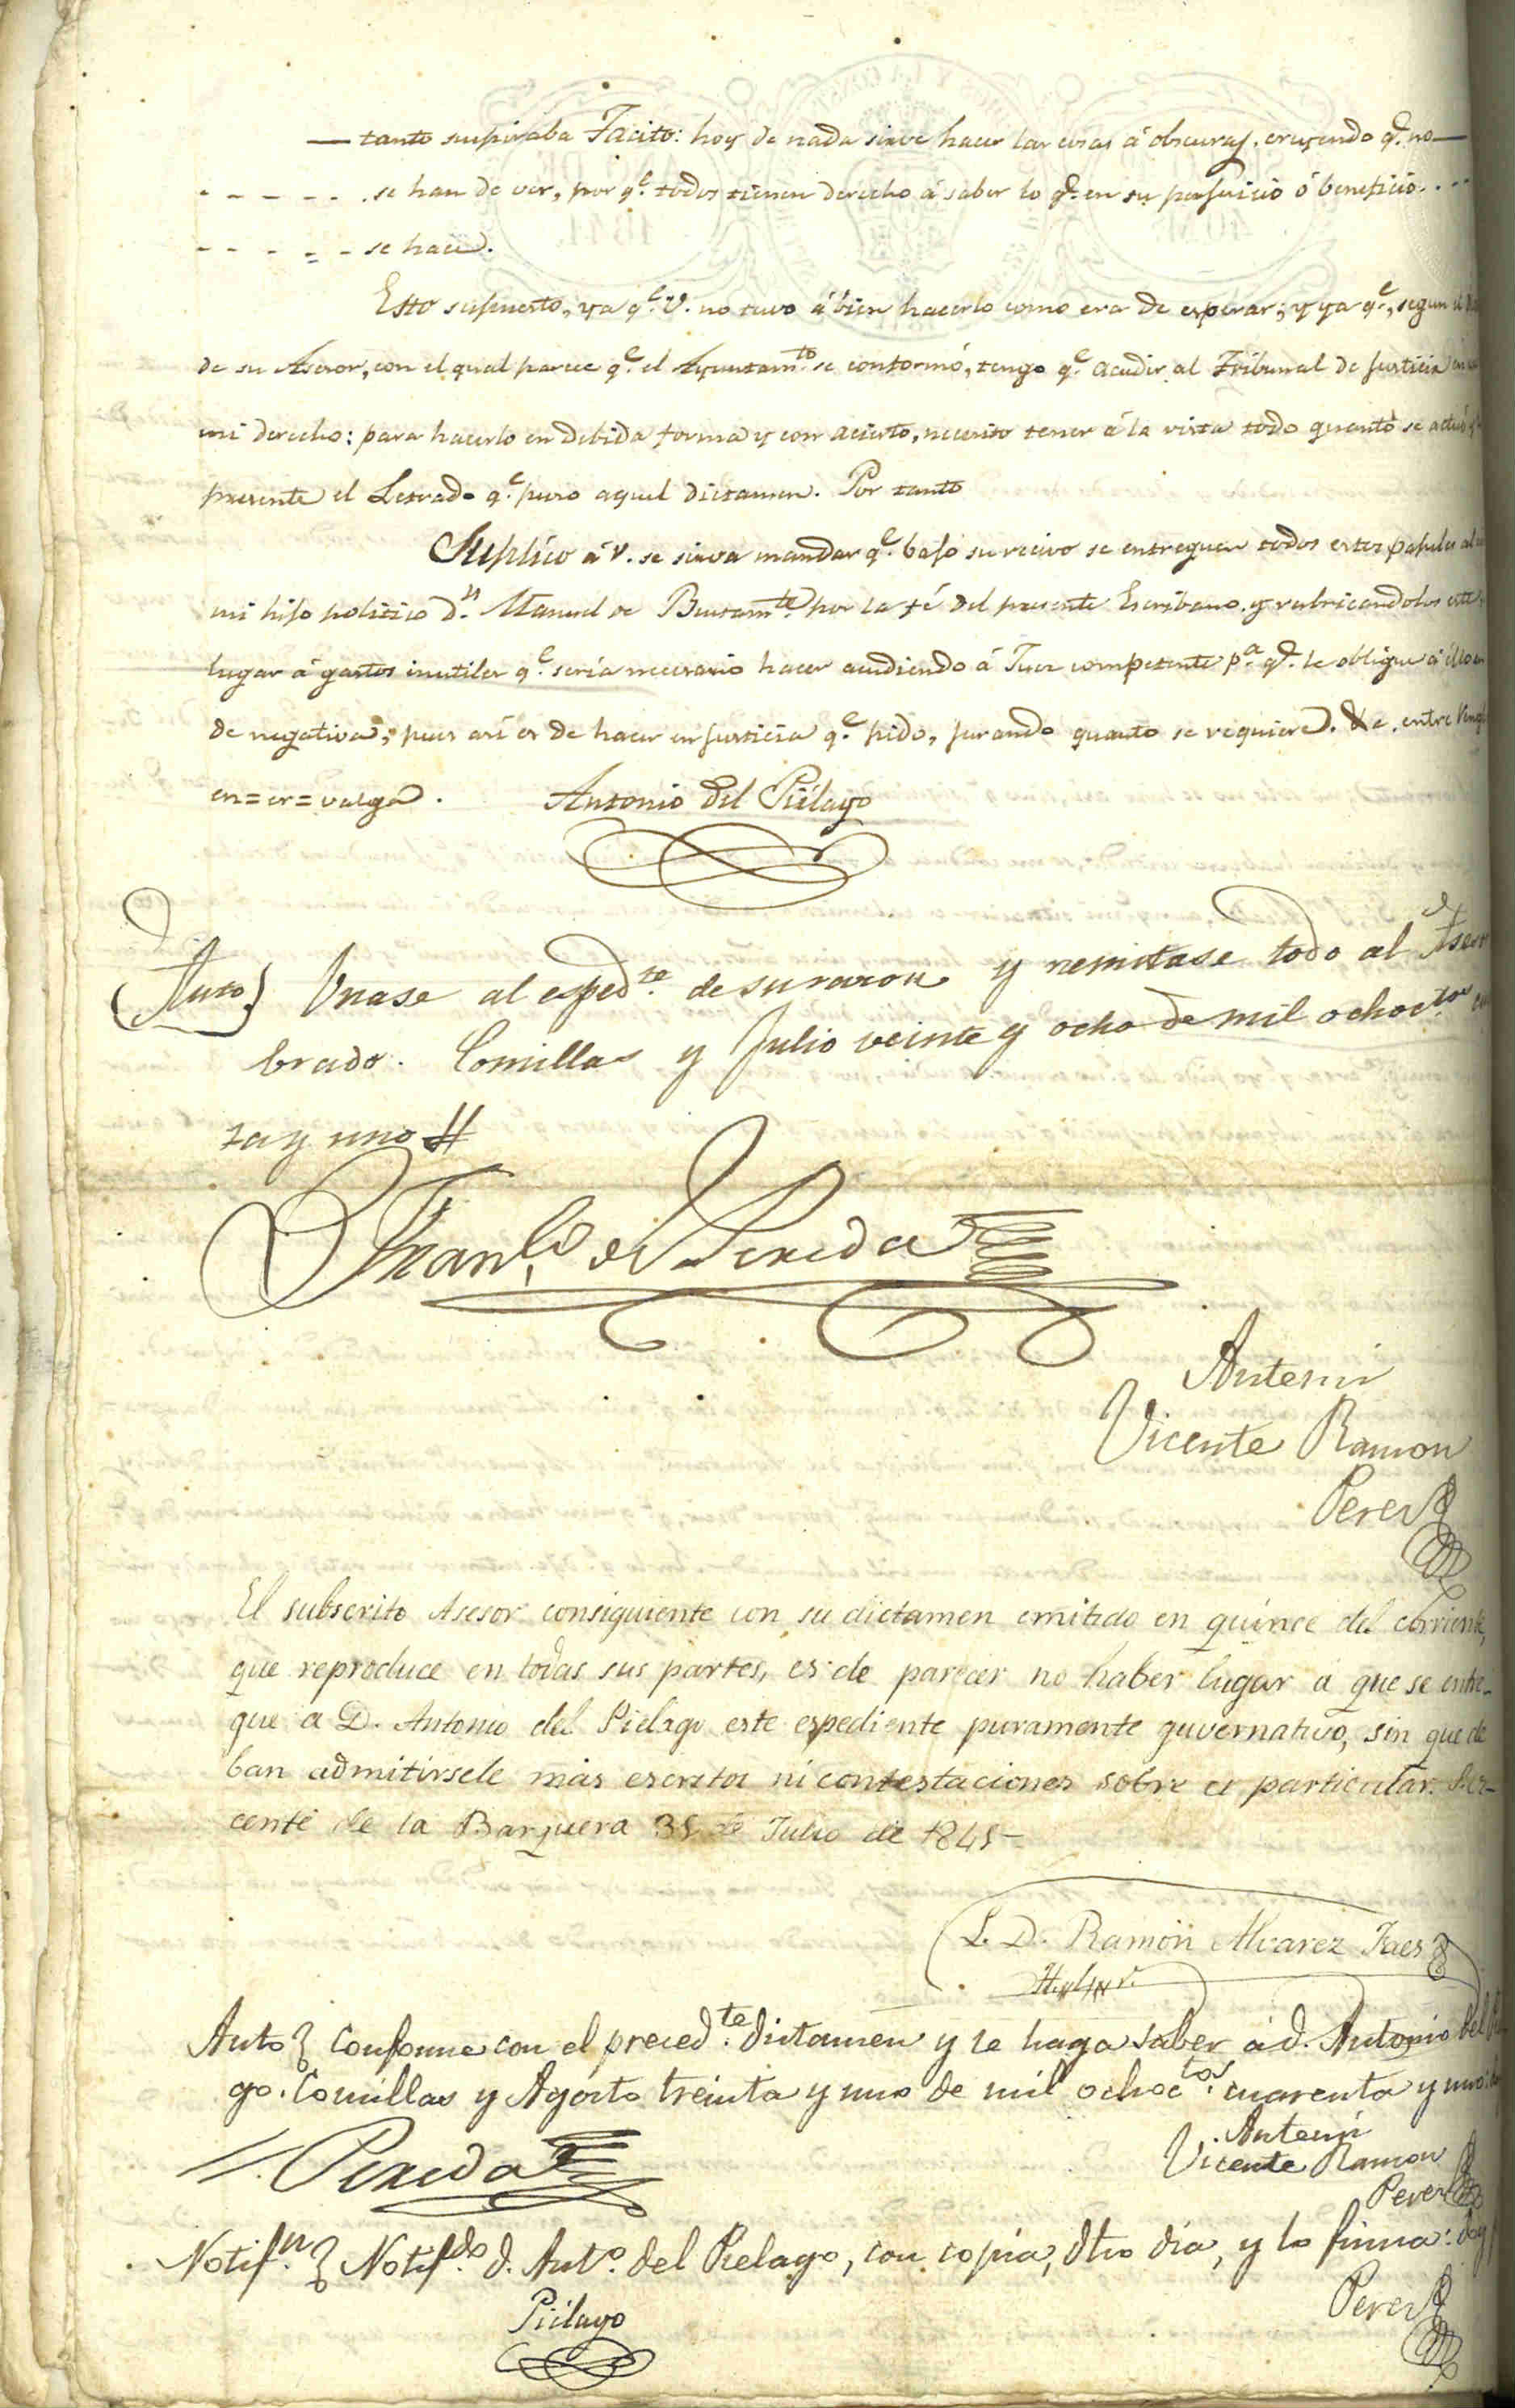 — tanto suspiraba Tácito: hoy de nada sirve hacer las cosas á obscuras, creyendo q.e no —
- - - - - - se han de ver, por q.e todos tienen derecho á saber lo q.e en su perjuicio ó beneficio. . - -
- - - - - se hace.
Esto supuesto, ya q.e V. no tuvo á bien hacerlo como era de esperar; y ya q.e, segun el
de su Asesor, con el qual parece q.e el Ayuntam.to se conformó, tengo q.e acudir al Tribunal de justicia
mi derecho: para hacerlo en debida forma y con acierto, necesito tener á la vista todo quanto se actuó y
presente el Letrado q.e puso aquel dictamen. Por tanto
Suplico á V. se sirva mandar q.e bajo su recivo se entreguen todos estos papeles al
mi hijo politico d.n Manuel de Bustam.te por la fé del presente Escribano, y rubricandolos este
lugar á gastos inutiles q.e sería necesario hacer acudiendo á Juez competente p.a q.e le obligue á ello en
de negativa, pues asi es de hacer en justicia q.e pido, jurando quanto se requiere. &a. entre
en=er=valga. Antonio del Piélago
Auto} Vnase al esped.te de su razon y remitase todo al Asesor
brado. Comillas y Julio veinte y ocho de mil ochoc.tos
ta y uno #
Fran.co de Pereda
Antemi
Vicente Ramon
Perez
El subscrito Asesor consiguiente con su dictamen emitido en quince del corriente,
que reproduce en todas sus partes, es de parecer no haber lugar á que se entre-
gue a D. Antonio del Piélago este espediente puramente guvernativo, sin que de
ban admitirsele mas escritos ni contestaciones sobre el particular. S.
cente de la Barquera de Julio de 1841-
L. D. Ramón Alvarez Jaes
Auto} Conforme con el preced.te dictamen y se haga saber á d. Antonio del
go. Comillas y Agosto treinta y uno de mil ochoc.tos cuarenta y uno
Pereda
Antemi
Vicente Ramon
Perez
Notif.n} Notif.do d. Ant.o del Piélago, con copia, dho día, y lo firma: doy
Piélago
Perez